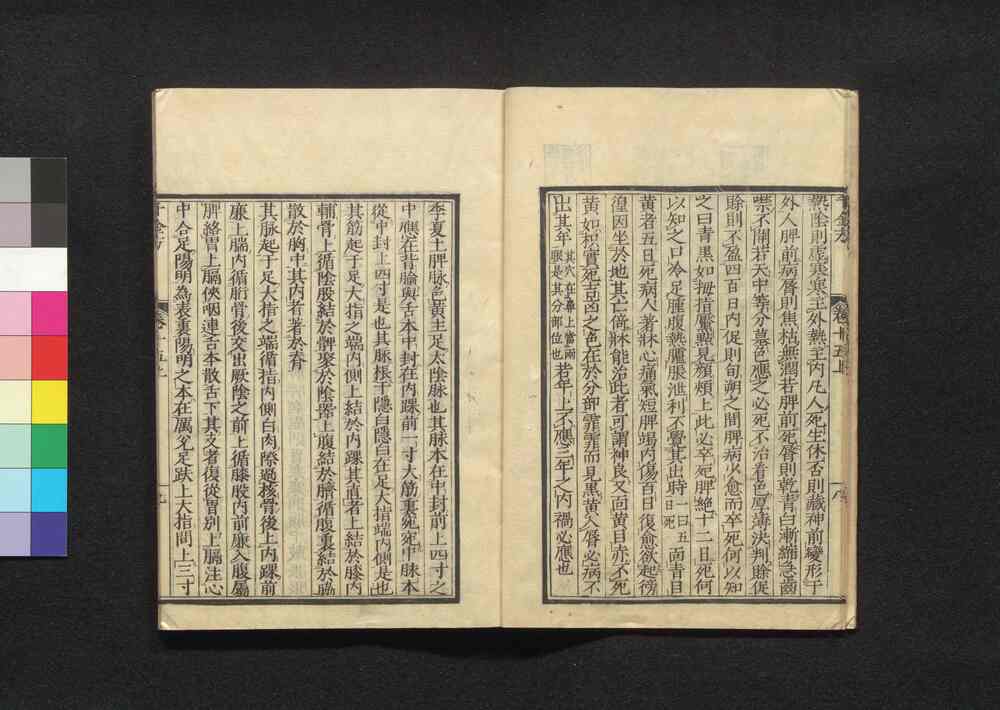 熱陰則虛寒寒主外熱主内凡人死生休否則藏神前變形于
外人脾前病唇則焦枯無潤若脾前死唇則乾青白漸縮急齒
噤不開若天中等分墓色應之必死不治看色厚薄決判賒促
賒則不盈四百日内促則旬朔之間脾病少愈而卒死何以知
之曰青黑如拇指黶點見顏頰上此必卒死脾絶十二日死何
以知之口冷足腫腹熱臚脹泄利不覺其出時一曰五日死面青目
黃者五日死病人著牀心痛氣短脾竭内傷百日復愈欲起徬
徨因坐於地其亡倚牀能治此者可謂神良又面黃目赤不死
黃如枳實死吉凶之色在於分部霏霏而見黑黃入唇必病不
出其年其穴在鼻上當兩眼是其分部位也若年上不應三年之内禍必應也
千金方
卷十五上
八
季夏土脾脉色黃主足太陰脉也其脉本在中封前上四寸之
中應在背腧與舌本中封在内踝前一寸大筋裏宛宛中脉本
從中封上四寸是也其脉根于隱白隱白在足大指端内側是也
其筋起于足大指之端内側上結於内踝其直者上結於膝内
輔骨上循陰股結於髀聚於陰器上腹結於臍循腹裏結於脇
散於胸中其内者著於脊
其脉起于足大指之端循指内側白肉際過核骨後上内踝前
廉上腨内循胻骨後交出厥陰之前上循膝股内前廉入腹屬
脾絡胃上膈俠咽連舌本散舌下其支者復從胃別上膈注心
中合足陽明為表裏陽明之本在厲兊足趺上大指間上三寸
千金方
卷十五上
九